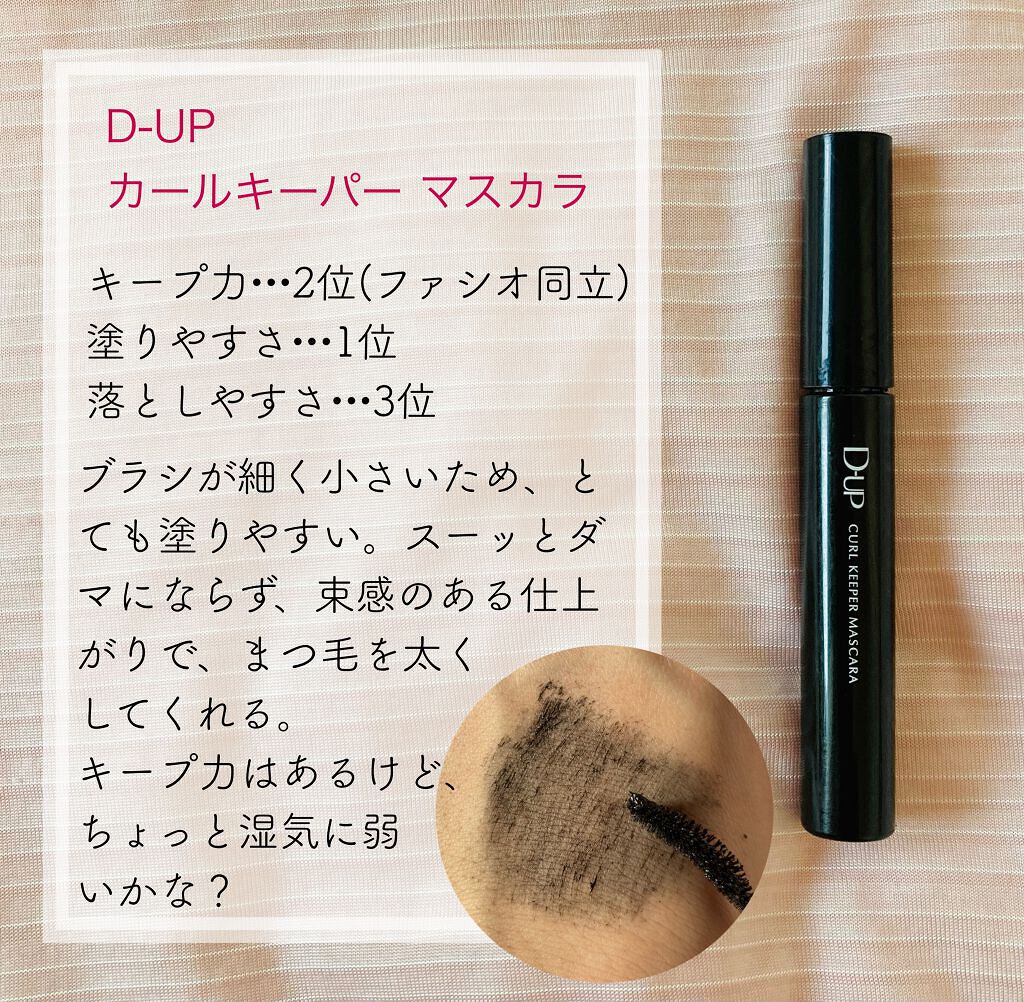 D-UP
カールキーパー マスカラ
キープ力•••2位(ファシオ同立)
塗りやすさ•••1位
落としやすさ•••3位
ブラシが細く小さいため、と
ても塗りやすい。スーッとダ
マにならず、束感のある仕上
がりで、まつ毛を太く
してくれる。
キープ力はあるけど、
ちょっと湿気に弱
いかな？
D-UP CURL KEEPER MASCARA